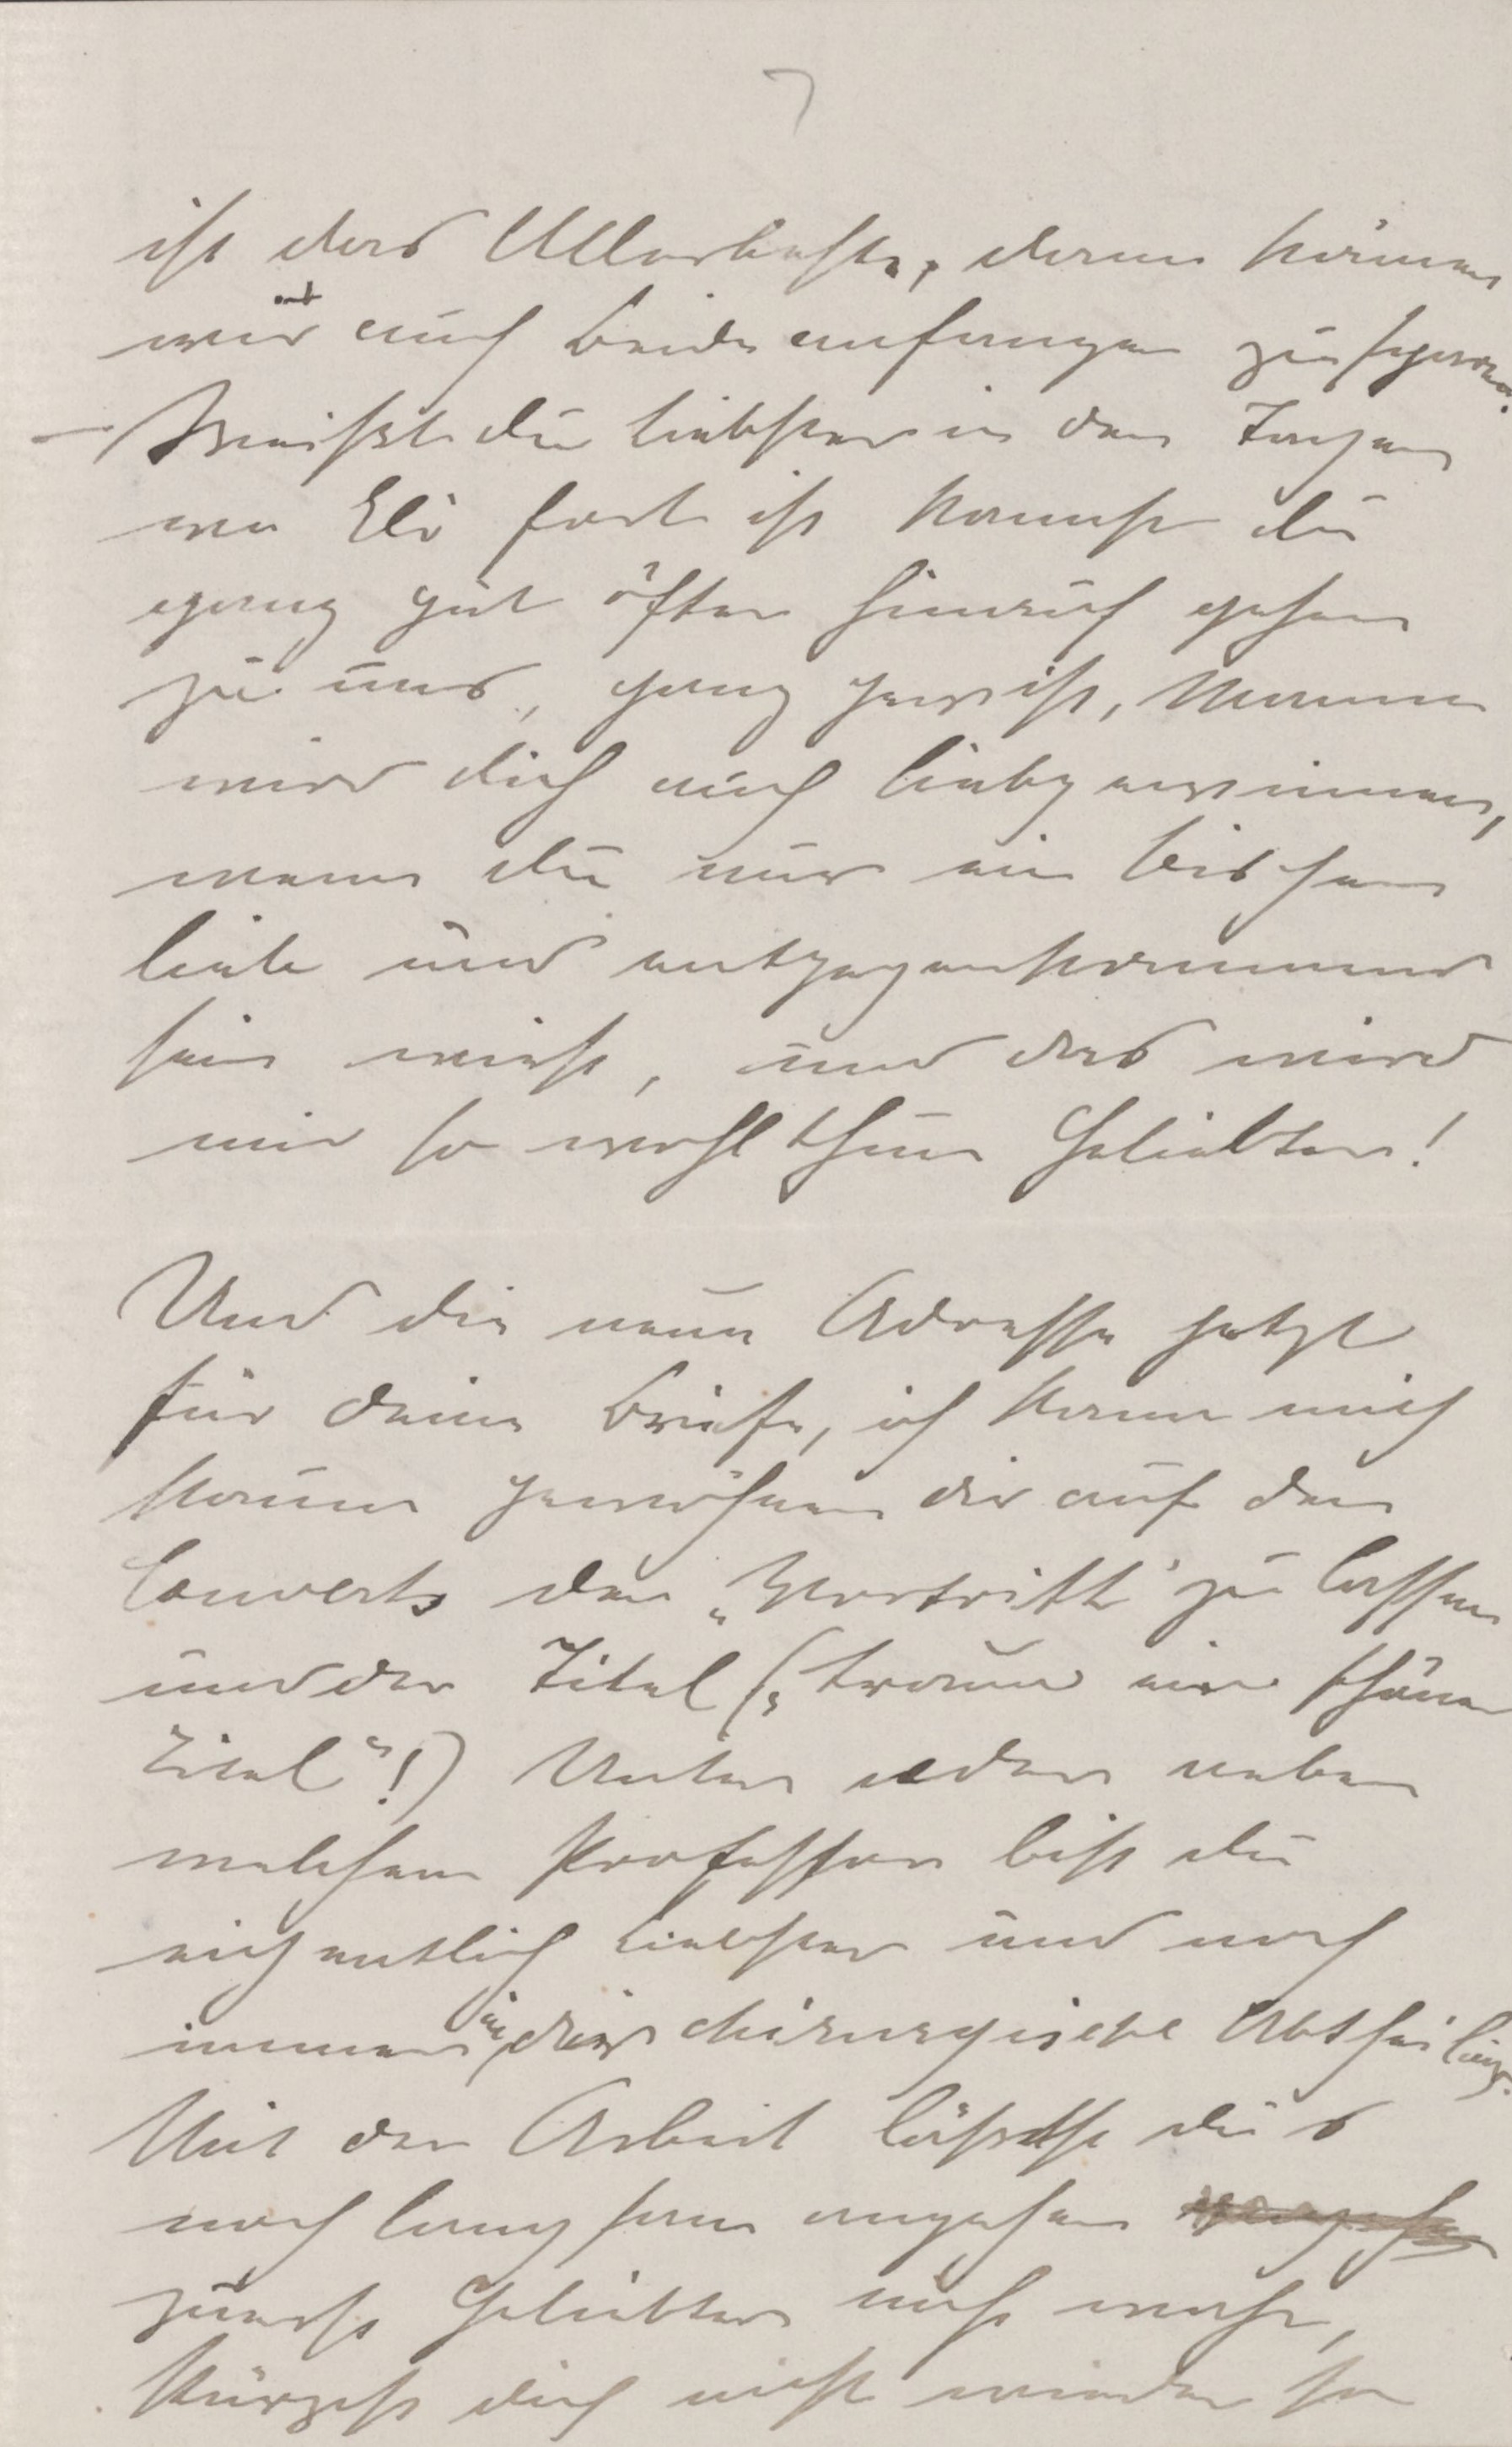 7
ist das Allerbeste, dann können
wir auch beide anfangen zu sparen.
– Weißt du liebster in den Tagen
wo Eli fort ist kannst du
ganz gut öfter hinauf gehen
zu uns, ganz gewiß, Mama
wird dich auch liebgewinnen,
wenn du nur ein bischen
liebe und entgegenkommend
sein wirst, und das wird
mir so wohl thun Geliebter!
Und die neue Adresse jetzt
für deine Briefe, ich kann mich
kaum gewöhnen dir auf den
Couverts den „Vortritt" zu lassen
und der Titel („traun ein schöner
Titel"!) Unter oder neben
welchem Professor bist du
eigentlich Liebster und noch
immer in der chirurgische Abtheilung.
Mit der Arbeit läßt du's
noch langsam angehen
zuerst Geliebter nicht wahr,
stürzest dich nicht wieder so